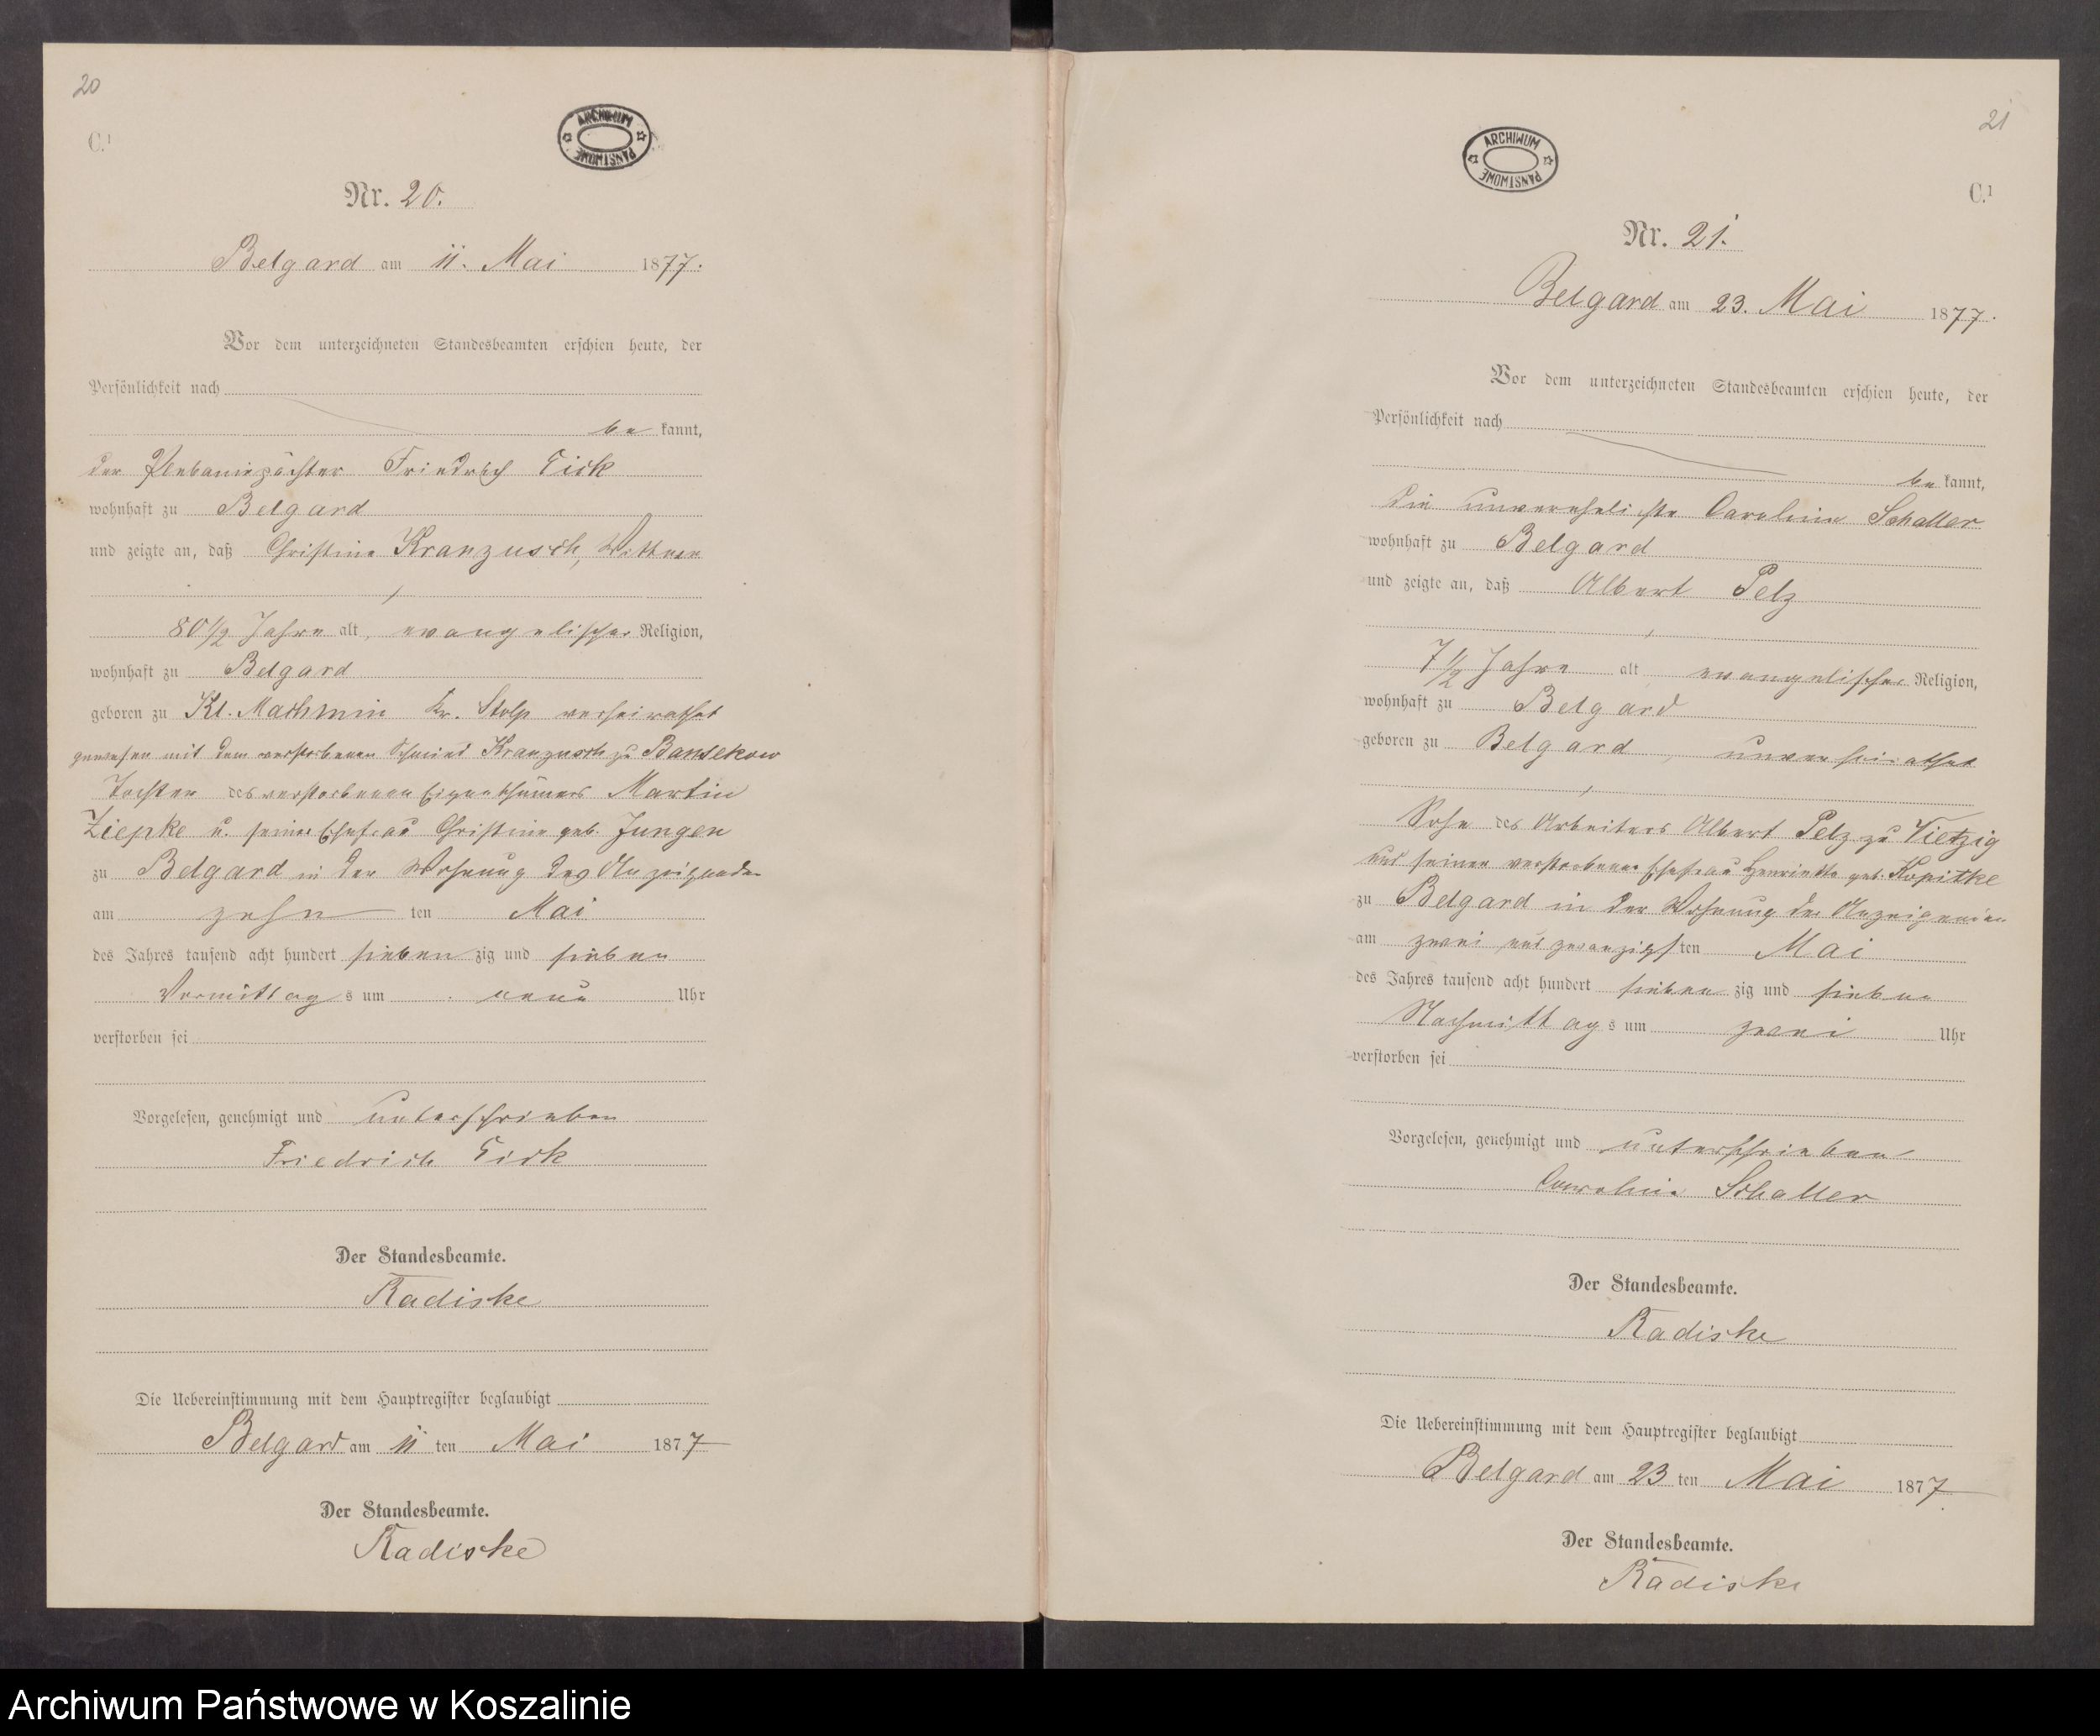 20
C.¹
ARCHIWUM PAŃSTWOWE
Nr. 20.
Belgard am 11. Mai 1877.
Vor dem unterzeichneten Standesbeamten erschien heute, der
Persönlichkeit nach
be kannt,
der Friedrich
wohnhaft zu Belgard
und zeigte an, daß Christine Kranzusch, Wittwe
80 1/2 Jahre alt, evangelischer Religion,
wohnhaft zu Belgard
geboren zu Kl. Machmin Kr. Stolp verheirathet
gewesen mit dem verstorbenen Schmied Kranzusch zu Bansekow
Tochter des verstorbenen Eigenthümers Martin
Ziepke u. seiner Ehefrau Christine geb. Jungen
zu Belgard in der Wohnung des Anzeigenden
am zehn ten Mai
des Jahres tausend acht hundert sieben zig und sieben
Vormittag s um neun Uhr
verstorben sei
Vorgelesen, genehmigt und unterschrieben
Friedrich
Der Standesbeamte.
Radiske
Die Uebereinstimmung mit dem Hauptregister beglaubigt
Belgard am 11 ten Mai 1877
Der Standesbeamte.
Radiske
21
ARCHIWUM PAŃSTWOWE
C.¹
Nr. 21.
Belgard am 23. Mai 1877.
Vor dem unterzeichneten Standesbeamten erschien heute, der
Persönlichkeit nach
be kannt,
die unverehelichte Caroline Schaller
wohnhaft zu Belgard
und zeigte an, daß Albert Pelz
7 1/2 Jahre alt evangelischer Religion,
wohnhaft zu Belgard
geboren zu Belgard, unverheirathet
Sohn des Arbeiters Albert Pelz zu Vietzig
und seiner verstorbenen Ehefrau Henriette geb. Kopitke
zu Belgard in der Wohnung der Anzeigenden
am zwei und zwanzigsten Mai
des Jahres tausend acht hundert sieben zig und sieben
Nachmittag s um zwei Uhr
verstorben sei
Vorgelesen, genehmigt und unterschrieben
Caroline Schaller
Der Standesbeamte.
Radiske
Die Uebereinstimmung mit dem Hauptregister beglaubigt
Belgard am 23 ten Mai 1877
Der Standesbeamte.
Radiske
Archiwum Państwowe w Koszalinie